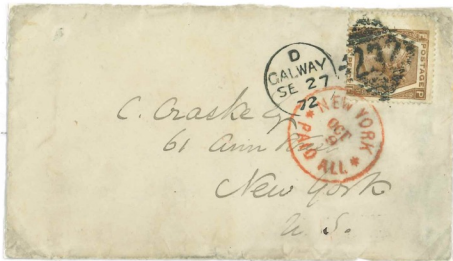 D
GALWAY
SE 27
72
POSTAGE
NEW YORK
OCT
PAID ALL
C. Craske Esq
61 Ann Street
New York
U.S.